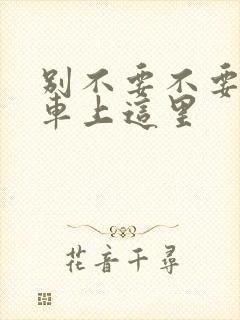 别不要不要
車上這里
花音千尋